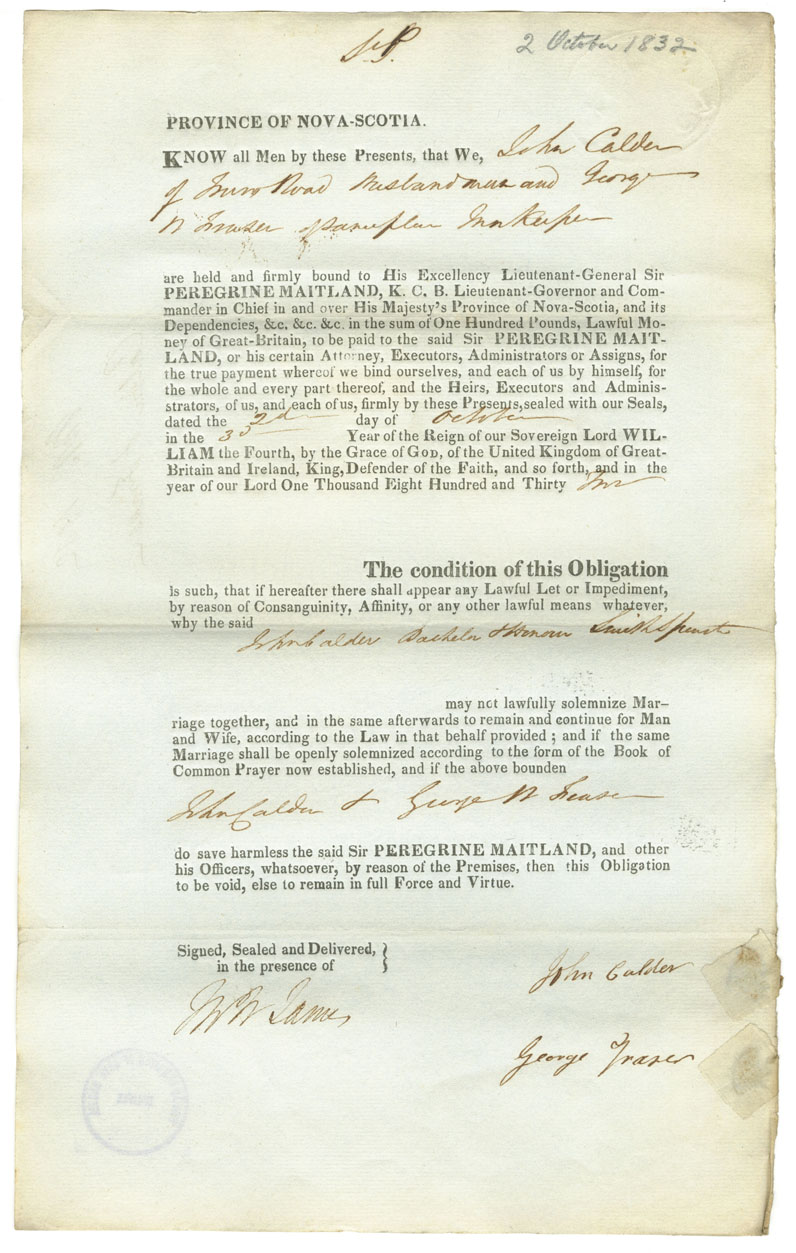 2 October 1832
PROVINCE OF NOVA-SCOTIA.
KNOW all Men by these Presents, that We, John Calder
of Truro Road Husbandman and George
N Fraser of same place Inn Keeper
are held and firmly bound to His Excellency Lieutenant-General Sir
PEREGRINE MAITLAND, K. C. B. Lieutenant-Governor and Com-
mander in Chief in and over His Majesty's Province of Nova-Scotia, and its
Dependencies, &c. &c. &c. in the sum of One Hundred Pounds, Lawful Mo-
ney of Great-Britain, to be paid to the said Sir PEREGRINE MAIT-
LAND, or his certain Attorney, Executors, Administrators or Assigns, for
the true payment whereof we bind ourselves, and each of us by himself, for
the whole and every part thereof, and the Heirs, Executors and Adminis-
strators, of us, and each of us, firmly by these Presents, sealed with our Seals,
dated the 2d day of October
in the 3d Year of the Reign of our Sovereign Lord WIL-
LIAM the Fourth, by the Grace of GOD, of the United Kingdom of Great-
Britain and Ireland, King, Defender of the Faith, and so forth, and in the
year of our Lord One Thousand Eight Hundred and Thirty Two
The condition of this Obligation
is such, that if hereafter there shall appear any Lawful Let or Impediment,
by reason of Consanguinity, Affinity, or any other lawful means whatever,
why the said
John Calder Bachelor & Honour Smith Spinst
may not lawfully solemnize Mar-
riage together, and in the same afterwards to remain and continue for Man
and Wife, according to the Law in that behalf provided ; and if the same
Marriage shall be openly solemnized according to the form of the Book of
Common Prayer now established, and if the above bounden
John Calder & George N Fraser
do save harmless the said Sir PEREGRINE MAITLAND, and other
his Officers, whatsoever, by reason of the Premises, then this Obligation
to be void, else to remain in full Force and Virtue.
Signed, Sealed and Delivered, }
in the presence of
John Calder
George Fraser